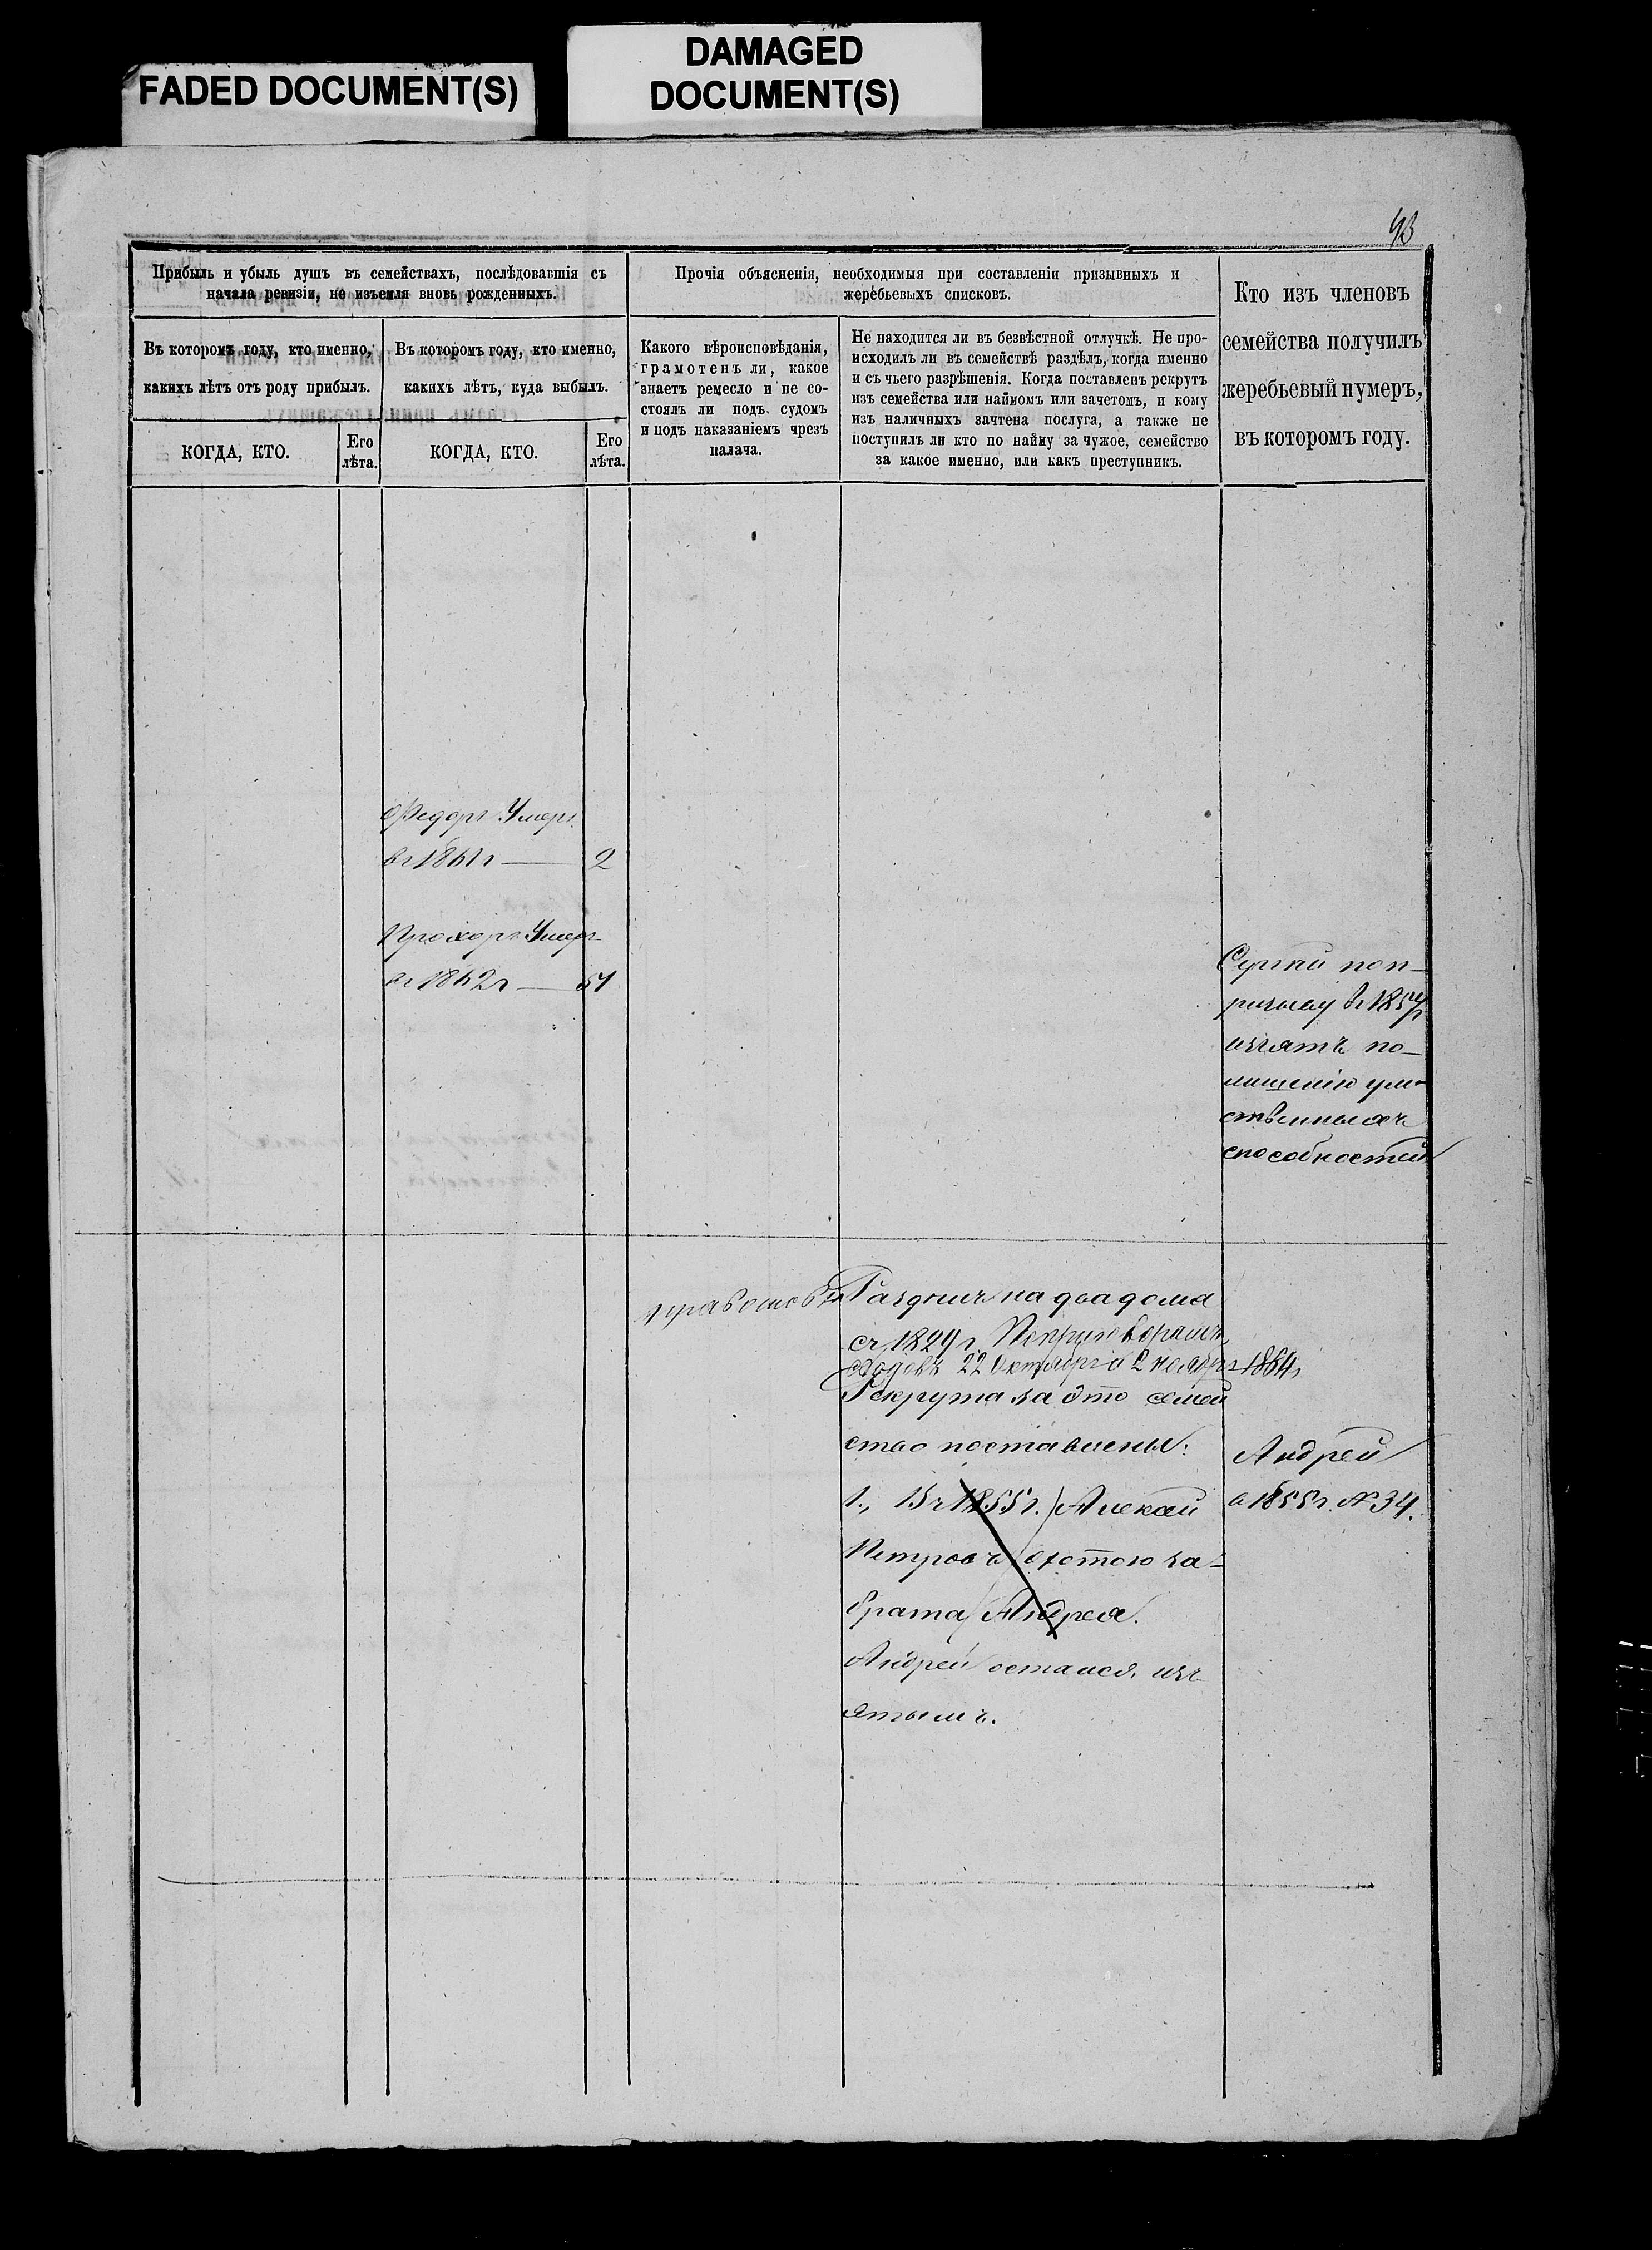 FADED DOCUMENT(S)
DAMAGED
DOCUMENT(S)
93
Прибыль и убыль душъ въ семействахъ, послѣдовавшія съ
начала ревизіи, не изъемля вновь рожденныхъ.
Въ которомъ году, кто именно,
какихъ лѣтъ отъ роду прибылъ.
Въ которомъ году, кто именно,
какихъ лѣтъ, куда выбылъ.
КОГДА, КТО.
Его
лѣта.
КОГДА, КТО.
Его
лѣта.
Прочія объясненія, необходимыя при составленіи призывныхъ и
жеребьевыхъ списковъ.
Какого вѣроисповѣданія,
грамотенъ ли, какое
знаетъ ремесло и не со-
стоялъ ли подъ судомъ
и подъ наказаніемъ чрезъ
палача.
Не находится ли въ безвѣстной отлучкѣ. Не про-
исходилъ ли въ семействѣ раздѣлъ, когда именно
и съ чьего разрѣшенія. Когда поставленъ рекрутъ
изъ семейства или наймомъ или зачетомъ, и кому
изъ наличныхъ зачтена послуга, а также не
поступилъ ли кто по найму за чужое, семейство
за какое именно, или какъ преступникъ.
Кто изъ членовъ
семейства получилъ
жеребьевый нумеръ,
въ которомъ году.
Федоръ Умеръ
въ 1861г 2
Прохоръ Умеръ
въ 1862г 51
Сергѣй поп-
ризыву въ 1857г
изъятъ по-
лишенію ум-
ственныхъ
способностей
православ
Раздѣлъ на два дома
съ 1829г. Поприговорамъ
сходовъ 22 Октября и 2 ноября 1864г
Рекрута за это семей
ство поставлены:
1., Въ 1855г. Алексѣй
Петровъ охотою за-
брата Андрея.
Андрей остался изъ
ятымъ.
Андрей
въ 1855г. № 34.